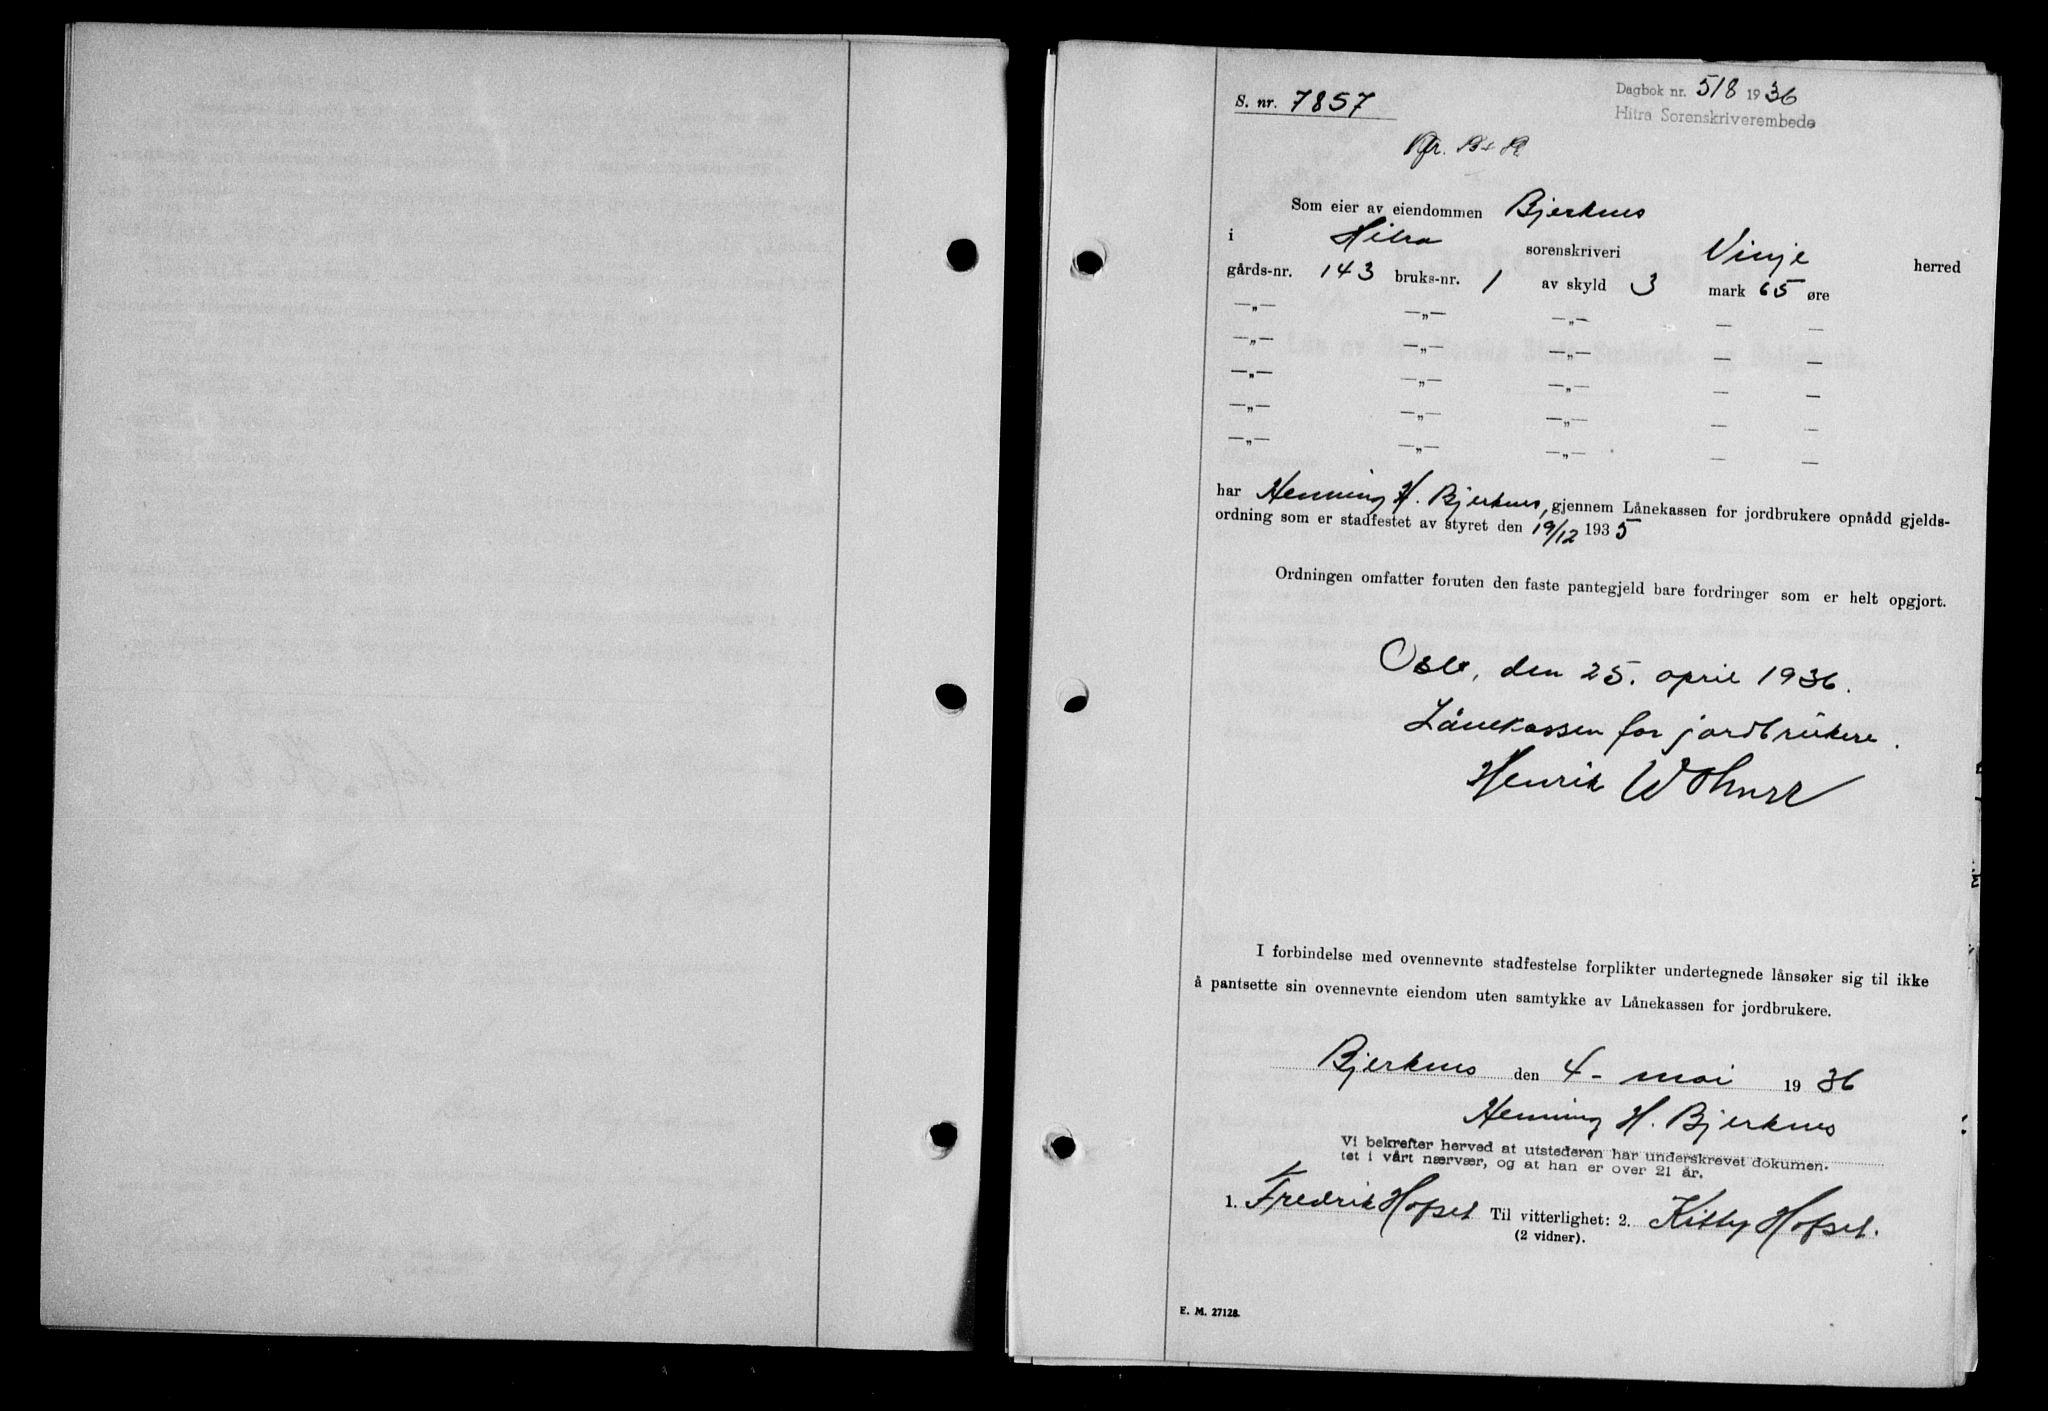 S. nr. 7857
Dagbok nr. 518 1936
Hitra Sorenskriverembede
Som eier av eiendommen Bjerknes
i Hitra sorenskriveri Vinje herred
gårds-nr. 143 bruks-nr. 1 av skyld 3 mark 65 øre
—„— —„— —„— — —
—„— —„— —„— — —
—„— —„— —„— — —
—„— —„— —„— — —
—„— —„— —„— — —
har Henning H. Bjerknes, gjennem Lånekassen for jordbrukere opnådd gjelds-
ordning som er stadfestet av styret den 19/12 1935
Ordningen omfatter foruten den faste pantegjeld bare fordringer som er helt opgjort.
Oslo, den 25. april 1936.
Lånekassen for jordbrukere.
Henrik
I forbindelse med ovennevnte stadfestelse forplikter undertegnede lånsøker sig til ikke
å pantsette sin ovennevnte eiendom uten samtykke av Lånekassen for jordbrukere.
Bjerknes den 4- mai 1936
Henning H. Bjerknes
Vi bekrefter herved at utstederen har underskrevet dokumen-
tet i vårt nærvær, og at han er over 21 år.
1. Fredrik Hofset Til vitterlighet: 2. Kitty Hofset.
(2 vidner).
E. M. 27128.